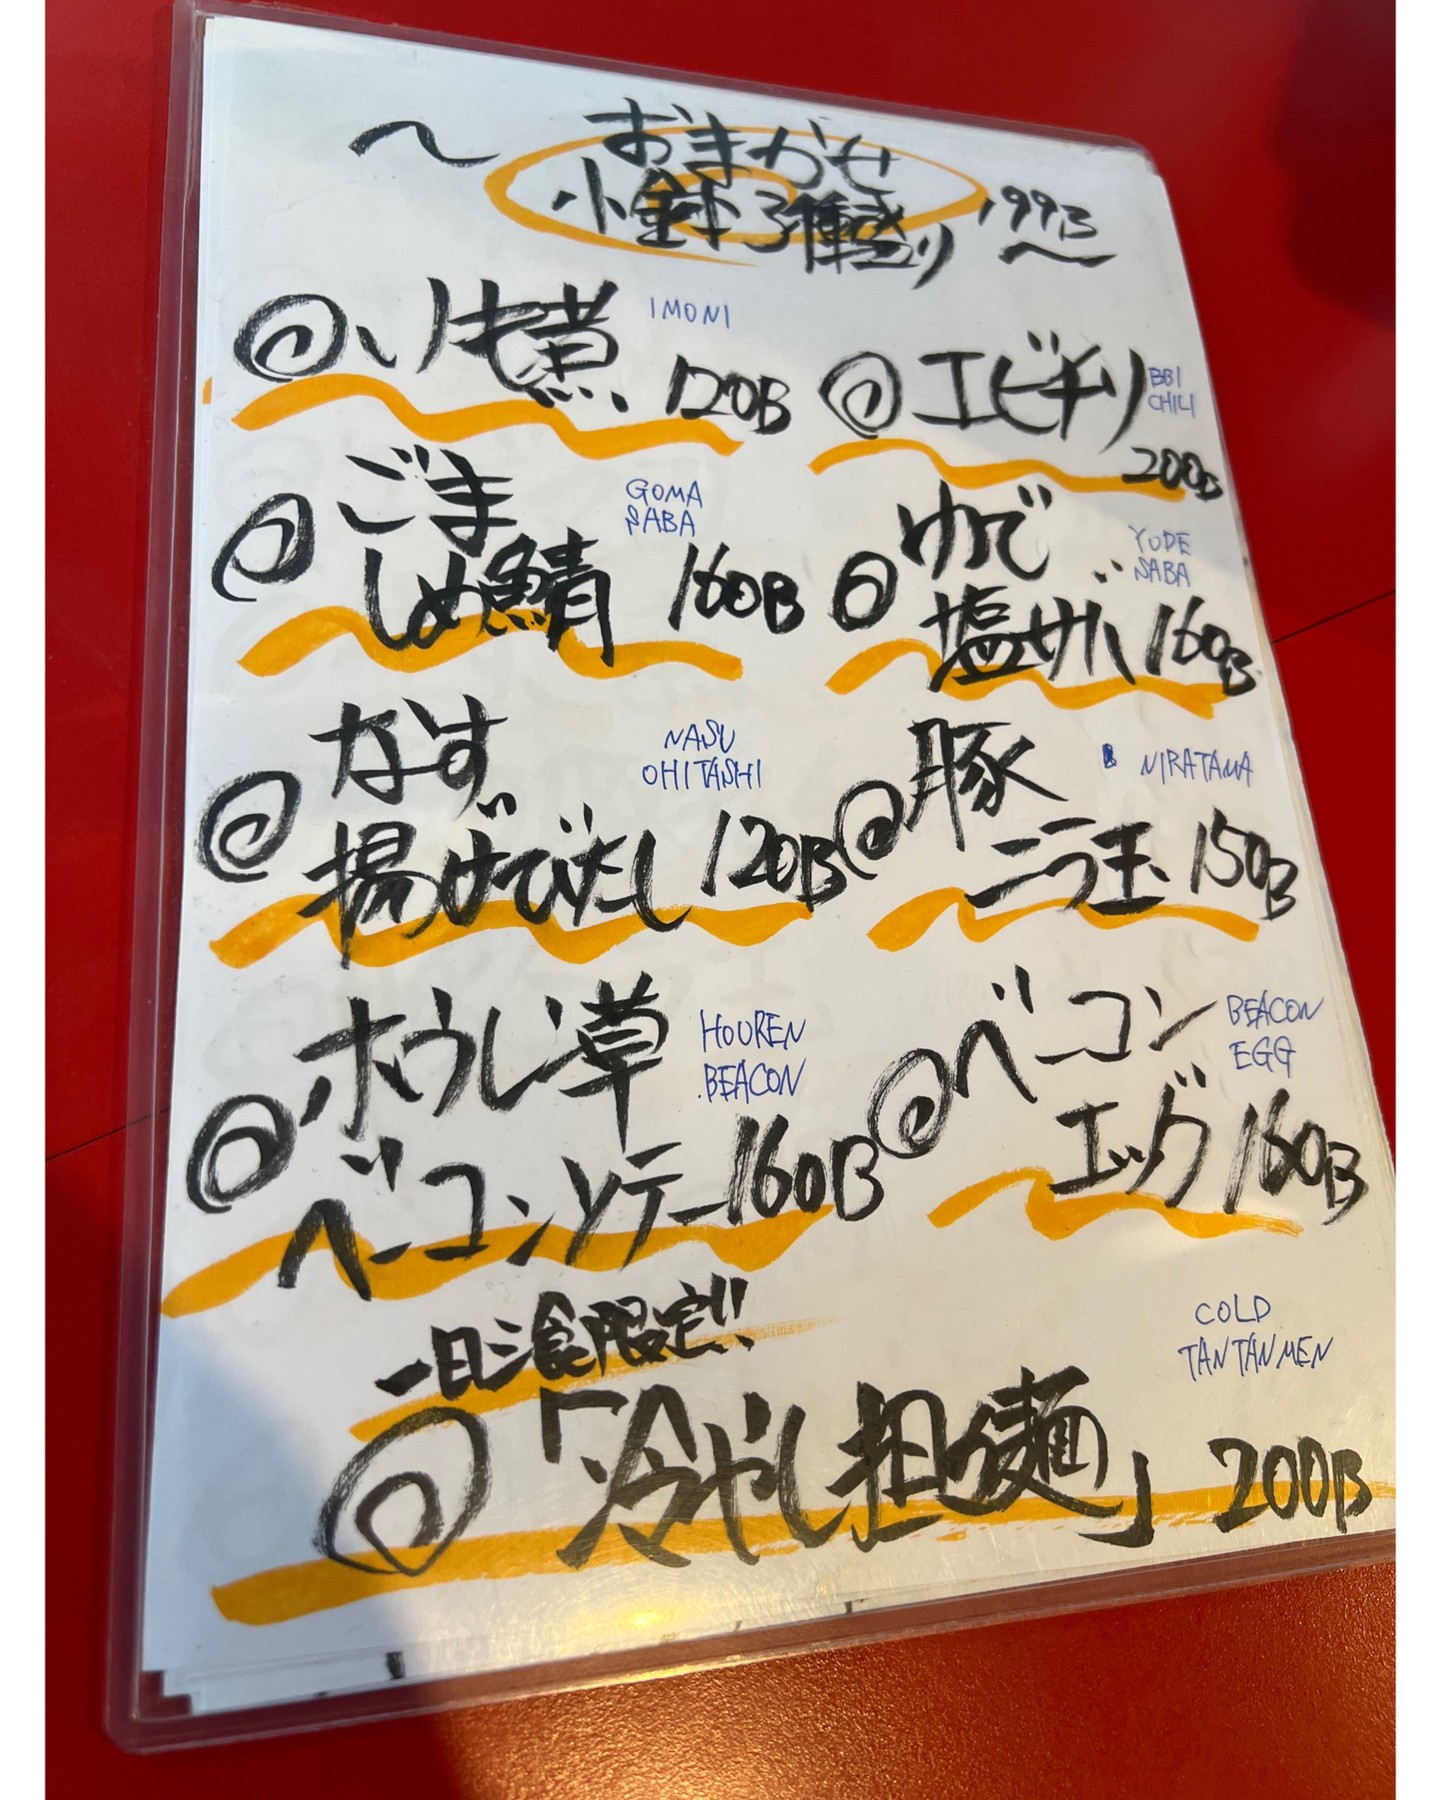 〜 おまかせ
小鉢3種盛り 199B〜
◎いも煮 IMONI 120B
◎エビチリ
CHILI
200B
◎ごま GOMA
しめ鯖 SABA 160B
◎ゆで YUDE
塩サバ SABA 160B
◎なす NASU
揚げびたし OHITASHI 120B
◎豚 NIRATAMA
ニラ玉 150B
◎ホウレン草 HOUREN
ベーコンソテー BEACON 160B
◎ベーコン BEACON
エッグ EGG 160B
一日三食限定!!
COLD
TANTANMEN
◎「冷やし担々麺」 200B